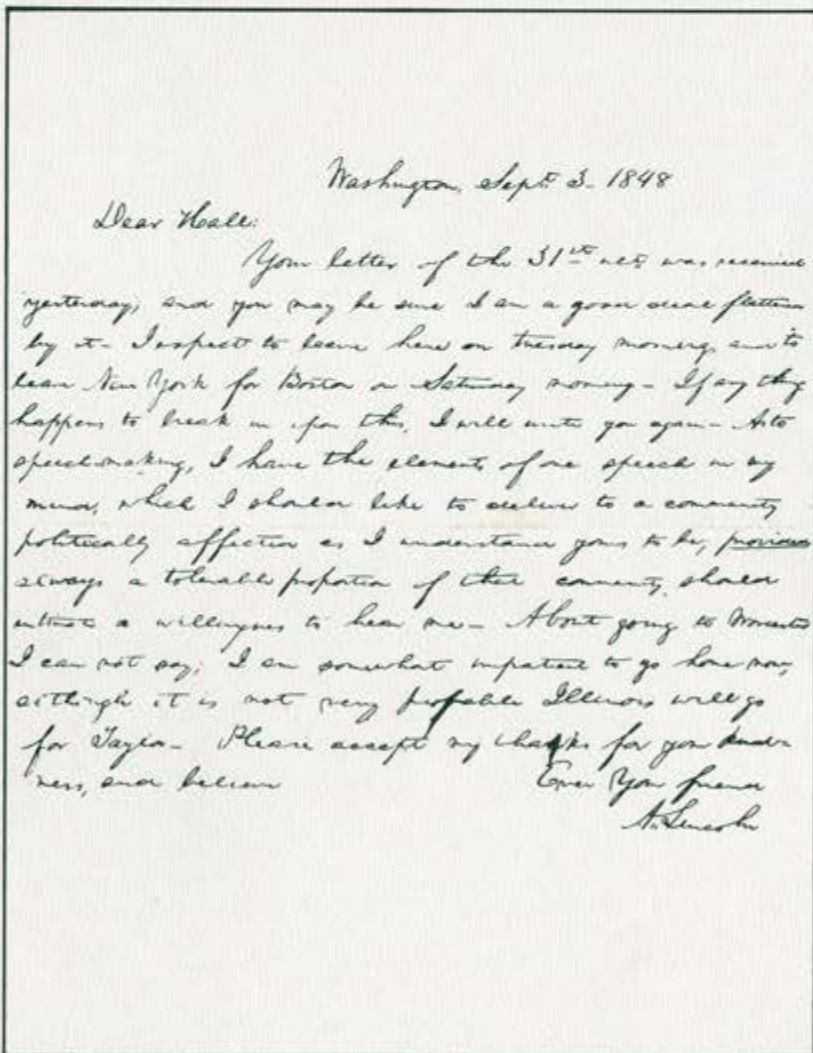 Washington, Sept. 3- 1848
Dear Hall:
Your letter of the 31st ult. was received
yesterday; and you may be sure I am a good deal flattered
by it- I expect to leave here on tuesday morning, and to
leave New York for Boston on Saturday morning- If any thing
happens to break in upon this, I will write you again- As to
speech-making, I have the elements of one speech in my
mind, which I should like to deliver to a community
politically affected as I understand yours to be, provided
always a tolerable proportion of that community, should
a willingness to hear me- About going to Worcester
I can not say; I am somewhat impatient to go home now,
although it is not very probable Illinois will go
for Taylor- Please accept my thanks for your kind-
ness, and believe
Ever Your friend
A. Lincoln